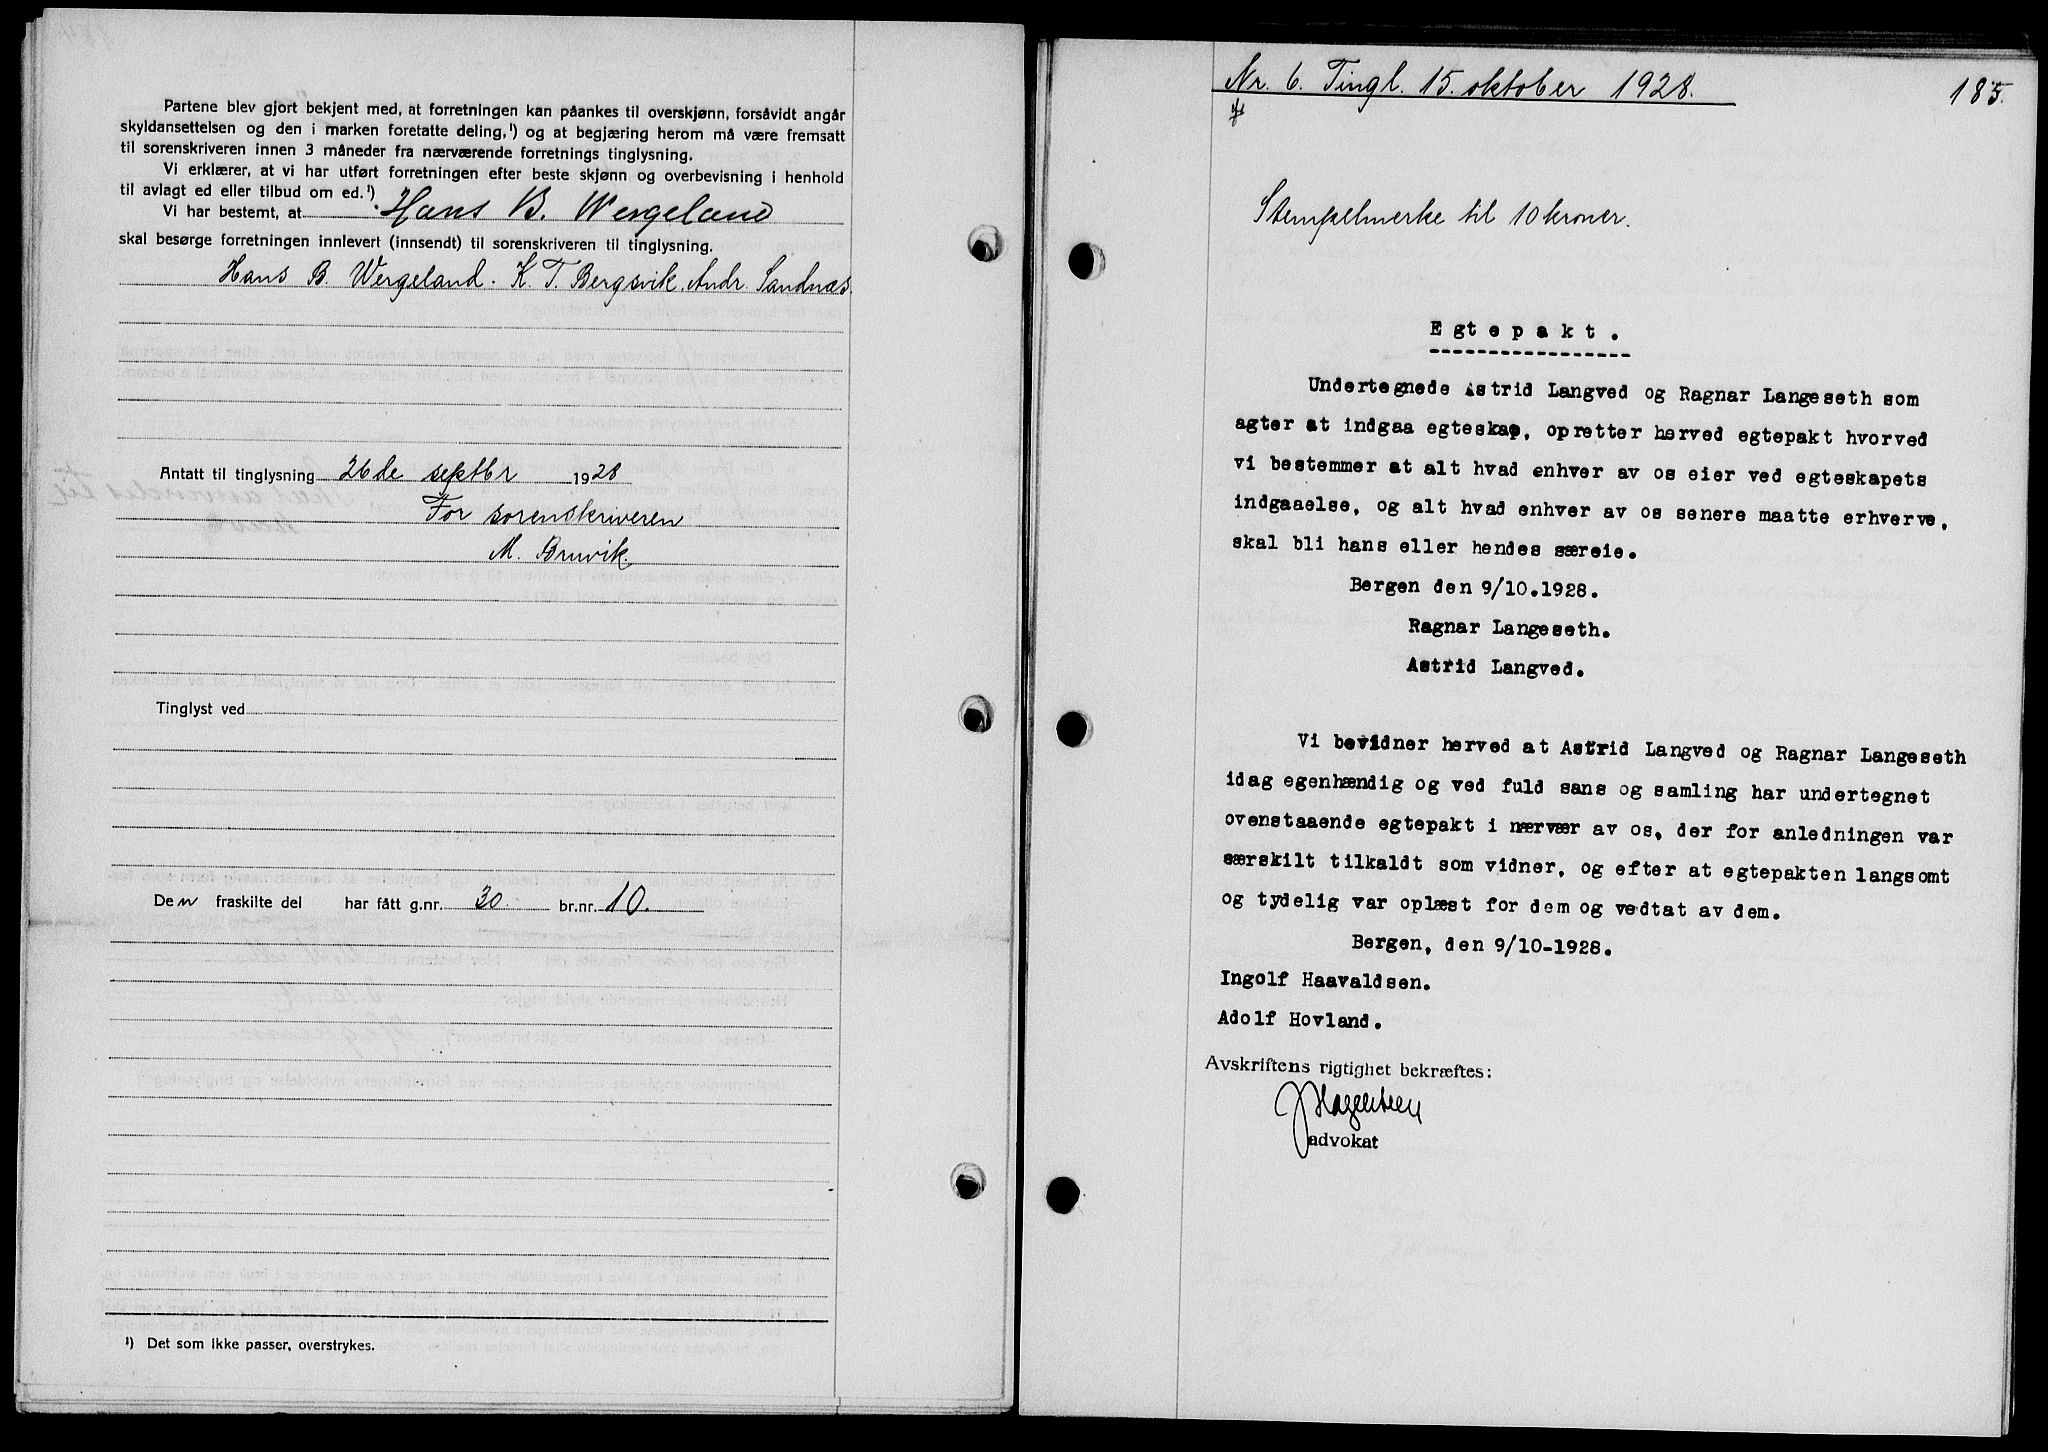 Partene blev gjort bekjent med, at forretningen kan påankes til overskjønn, forsåvidt angår
skyldansettelsen og den i marken foretatte deling,¹) og at begjæring herom må være fremsatt
til sorenskriveren innen 3 måneder fra nærværende forretnings tinglysning.
Vi erklærer, at vi har utført forretningen efter beste skjønn og overbevisning i henhold
til avlagt ed eller tilbud om ed.¹)
Vi har bestemt, at Hans B. Wergeland
skal besørge forretningen innlevert (innsendt) til sorenskriveren til tinglysning.
Hans B. Wergeland. K. T. Bergsvik. Andr. Sandnæs.
Antatt til tinglysning 26de septbr 1928
For sorenskriveren
M. Bruvik
Tinglyst ved
Den fraskilte del har fått g.nr. 30. br.nr. 10.
¹) Det som ikke passer, overstrykes.
Nr. 6. Tingl. 15. oktober 1928.
185.
Stempelmerke til 10 kroner.
Egtepakt.
Undertegnede Astrid Langved og Ragnar Langeseth som
agter at indgaa egteskap, opretter herved egtepakt hvorved
vi bestemmer at alt hvad enhver av os eier ved egteskapets
indgaaelse, og alt hvad enhver av os senere maatte erhverve,
skal bli hans eller hendes særeie.
Bergen den 9/10.1928.
Ragnar Langeseth.
Astrid Langved.
Vi bevidner herved at Astrid Langved og Ragnar Langeseth
idag egenhændig og ved fuld sans og samling har undertegnet
ovenstaaende egtepakt i nærvær av os, der for anledningen var
særskilt tilkaldt som vidner, og efter at egtepakten langsomt
og tydelig var oplæst for dem og vedtat av dem.
Bergen, den 9/10-1928.
Ingolf Haavaldsen.
Adolf Hovland.
Avskriftens rigtighet bekræftes:
advokat